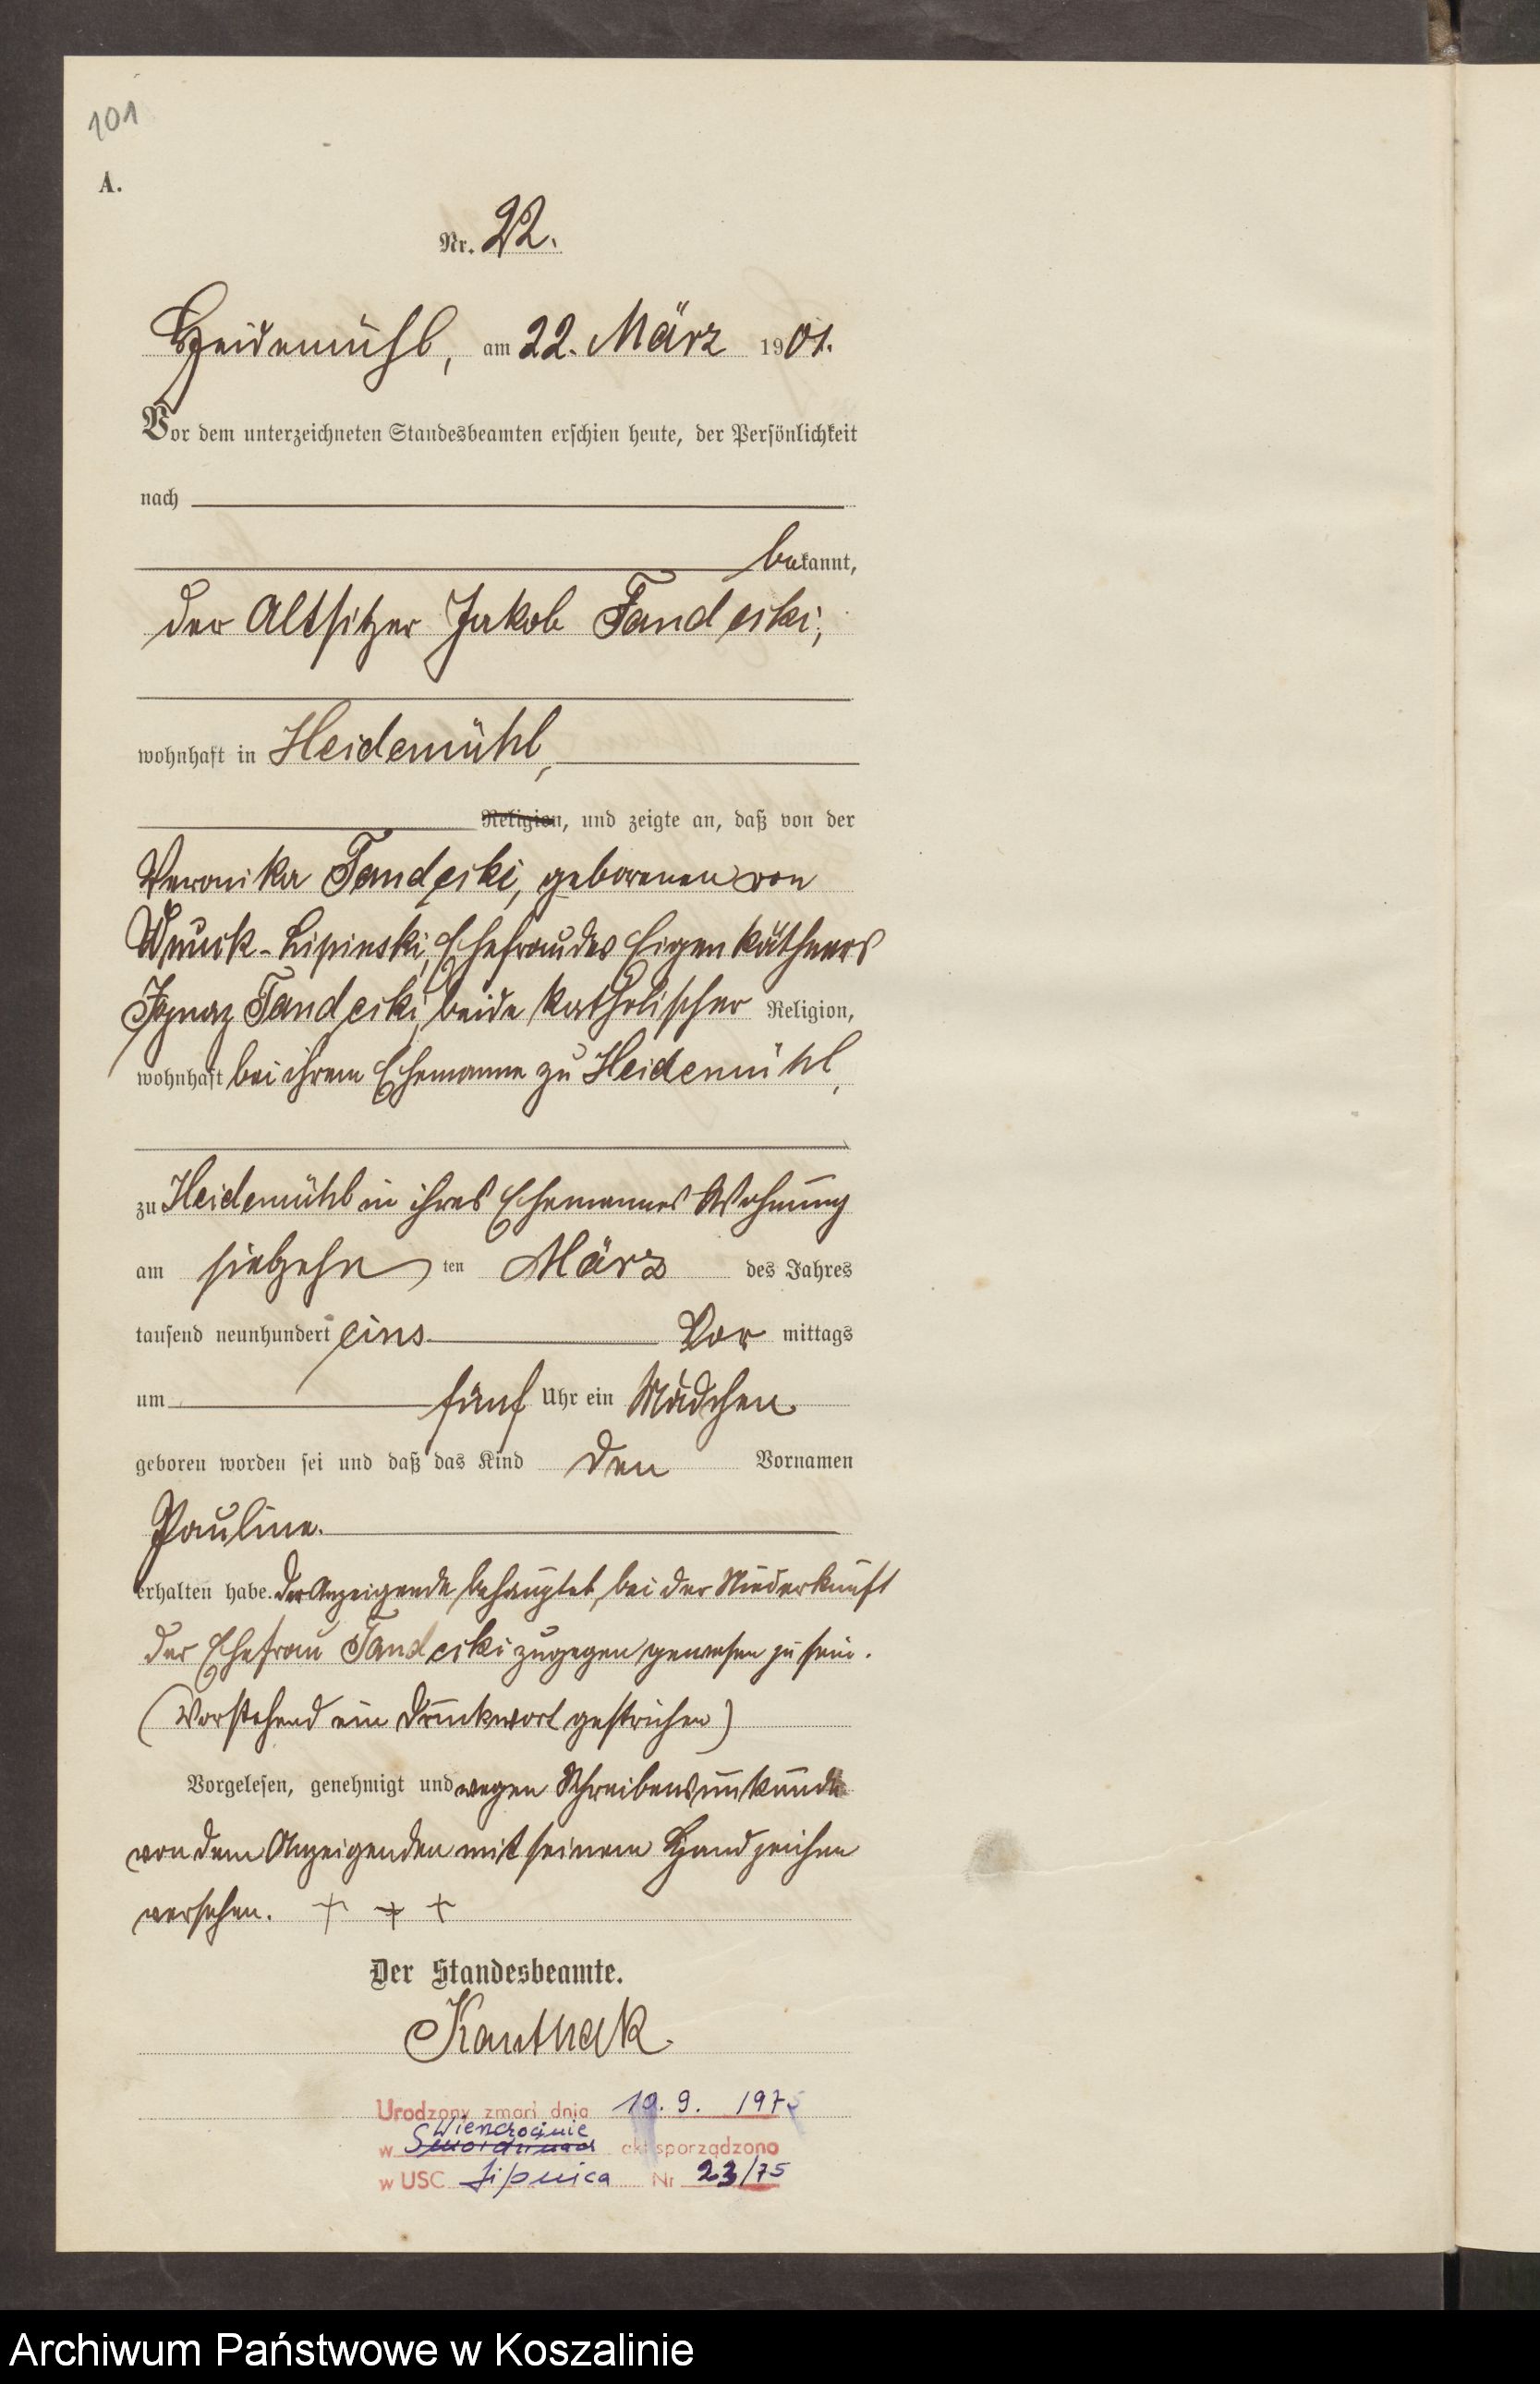 101
A.
Nr. 22.
Heidemühl, am 22. März 1901.
Vor dem unterzeichneten Standesbeamten erschien heute, der Persönlichkeit
nach
bekannt,
der Altsitzer Jakob Tandecki,
wohnhaft in Heidemühl,
Religion, und zeigte an, daß von der
Veronika Tandecki, geborenen von
Wnuck-Lipinski, Ehefrau des Eigenkäthners
Ignaz Tandecki, beide katholischer Religion,
wohnhaft bei ihrem Ehemanne zu Heidemühl,
zu Heidemühl in ihres Ehemannes Wohnung
am siebzehn ten März des Jahres
tausend neunhundert eins Vor mittags
um fünf Uhr ein Mädchen
geboren worden sei und daß das Kind den Vornamen
Pauline.
erhalten habe. Der Anzeigende behauptet, bei der Niederkunft
der Ehefrau Tandecki zugegen gewesen zu sein.
(Vorstehend ein Druckwort gestrichen)
Vorgelesen, genehmigt und wegen Schreibensunkunde
von dem Anzeigenden mit seinem Handzeichen
versehen. + + +
Der Standesbeamte.
Kanthak
Urodzony zmarł dnia 19. 9. 1975
w akt sporządzono
w USC Lipnica Nr 23/75
Archiwum Państwowe w Koszalinie